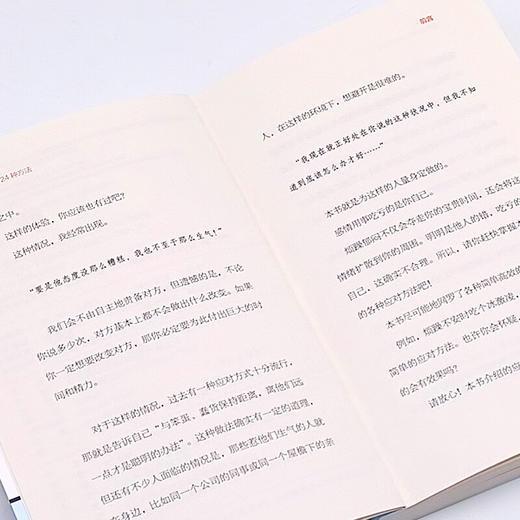 24 种方法
之中。
这样的体验，你应该也有过吧？
这种情况，我经常出现。
“要是他态度没那么糟糕，我也不至于那么生气！”
我们会不由自主地责备对方，但遗憾的是，不论
你说多少次，对方基本上都不会做出什么改变。如果
你一定想要改变对方，那你必定要为此付出巨大的时
间和精力。
对于这样的情况，过去有一种应对方式十分流行，
那就是告诉自己“与笨蛋、蠢货保持距离，离他们远
一点才是聪明的办法”。这种做法确实有一定的道理，
但还有不少人面临的情况是，那些惹他们生气的人就
在身边，比如同一个公司的同事或同一个屋檐下的亲
前言
人，在这样的环境下，想避开是很难的。
“我现在就正好处在你说的这种状况中，但我不知
道到底该怎么办才好……”
本书就是为这样的人量身定做的。
感情用事吃亏的是你自己。
烦躁郁闷不仅会夺走你的宝贵时间，还会将这
情绪扩散到你的周围。明明是他人的错，吃亏的
自己，这确实不合理。所以，请你赶快掌握本
的各种应对方法吧！
本书尽可能地网罗了各种简单高效的
例如，烦躁不安时吃个冰激凌，
简单的应对方法。也许你会怀疑，
的会有效果吗？
请放心！本书介绍的应